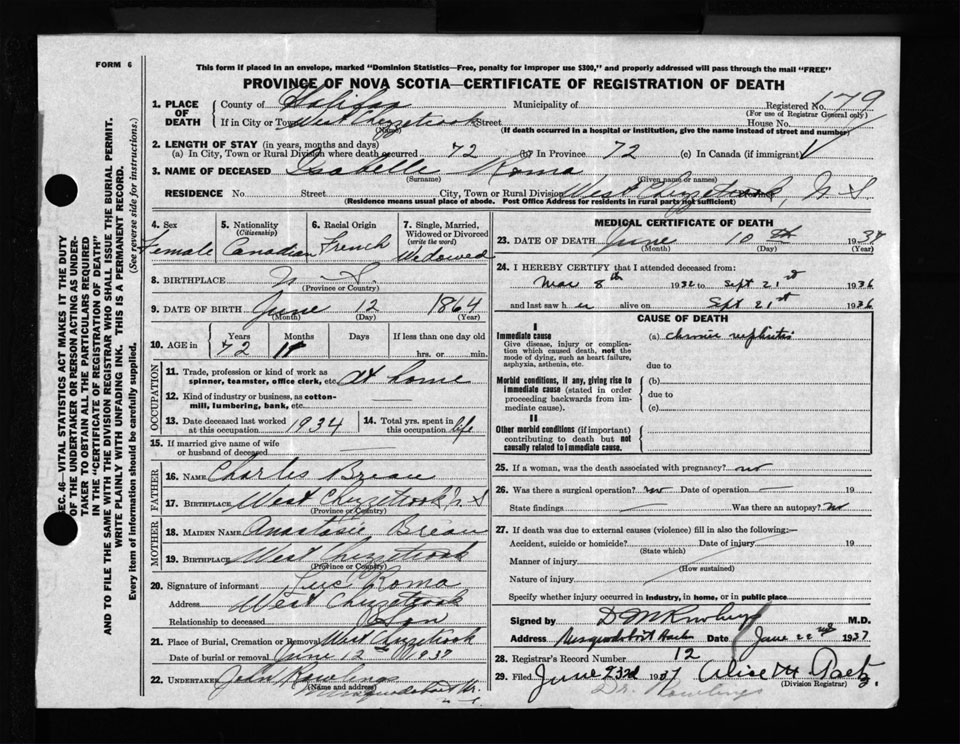 FORM 6
This form if placed in an envelope, marked "Dominion Statistics—Free, penalty for improper use $300," and properly addressed will pass through the mail "FREE"
PROVINCE OF NOVA SCOTIA—CERTIFICATE OF REGISTRATION OF DEATH
1. PLACE OF DEATH
County of Halifax Municipality of Registered No. 179
(For use of Registrar General only)
If in City or Town West Chezzetcook Street House No.
(Name) (If death occurred in a hospital or institution, give the name instead of street and number)
2. LENGTH OF STAY (in years, months and days)
(a) In City, Town or Rural Division where death occurred 72 (b) In Province 72 (c) In Canada (if immigrant)
3. NAME OF DECEASED Isabelle Roma
(Surname) (Given name or names)
RESIDENCE No Street City, Town or Rural Division West Chezzetcook, N. S
(Residence means usual place of abode. Post Office Address for residents in rural parts not sufficient)
4. Sex
Female
5. Nationality (Citizenship)
Canadian
6. Racial Origin
French
7. Single, Married, Widowed or Divorced (write the word)
Widowed
8. BIRTHPLACE N. S.
(Province or Country)
9. DATE OF BIRTH June 12 1864
(Month) (Day) (Year)
10. AGE in Years Months Days If less than one day old
72 hrs. or min.
OCCUPATION
11. Trade, profession or kind of work as spinner, teamster, office clerk, etc. at home
12. Kind of industry or business, as cotton-mill, lumbering, bank, etc.
13. Date deceased last worked at this occupation 1934
14. Total yrs. spent in this occupation life
15. If married give name of wife or husband of deceased
FATHER
16. NAME Charles Breau
17. BIRTHPLACE West Chezzetcook N S
(Province or Country)
MOTHER
18. MAIDEN NAME Anastasie Breau
19. BIRTHPLACE West Chezzetcook
(Province or Country)
20. Signature of informant Luc Roma
Address West Chezzetcook
Relationship to deceased Son
21. Place of Burial, Cremation or Removal West Chezzetcook
Date of burial or removal June 12 1937
22. UNDERTAKER John Rowlings
(Name and address) Musquodoboit Hr.
MEDICAL CERTIFICATE OF DEATH
23. DATE OF DEATH June 10th 1937
(Month) (Day) (Year)
24. I HEREBY CERTIFY that I attended deceased from:
Mar 8th 1932 to Sept 21st 1936
and last saw her alive on Sept 21st 1936
CAUSE OF DEATH
I
Immediate cause
Give disease, injury or complication which caused death, not the mode of dying, such as heart failure, asphyxia, asthenia, etc.
(a) chronic nephritis
due to
Morbid conditions, if any, giving rise to immediate cause (stated in order proceeding backwards from immediate cause).
(b)
due to
(c)
II
Other morbid conditions (if important) contributing to death but not causally related to immediate cause.
25. If a woman, was the death associated with pregnancy? no
26. Was there a surgical operation? no Date of operation 19
State findings Was there an autopsy? no
27. If death was due to external causes (violence) fill in also the following:—
Accident, suicide or homicide? Date of injury 19
(State which)
Manner of injury
(How sustained)
Nature of injury
Specify whether injury occurred in industry, in home, or in public place
Signed by D M Rowlings M.D.
Address Musquodoboit Harbor Date June 22nd 1937
28. Registrar's Record Number 12
29. Filed June 23rd 1937 Alice M
(Division Registrar)
Dr. Rowlings
SEC. 46—VITAL STATISTICS ACT MAKES IT THE DUTY
OF THE UNDERTAKER OR PERSON ACTING AS UNDER-
TAKER TO OBTAIN ALL THE PARTICULARS REQUIRED
IN THE "CERTIFICATE OF REGISTRATION OF DEATH"
AND TO FILE THE SAME WITH THE DIVISION REGISTRAR WHO SHALL ISSUE THE BURIAL PERMIT.
WRITE PLAINLY WITH UNFADING INK. THIS IS A PERMANENT RECORD.
Every item of information should be carefully supplied. (See reverse side for instructions.)